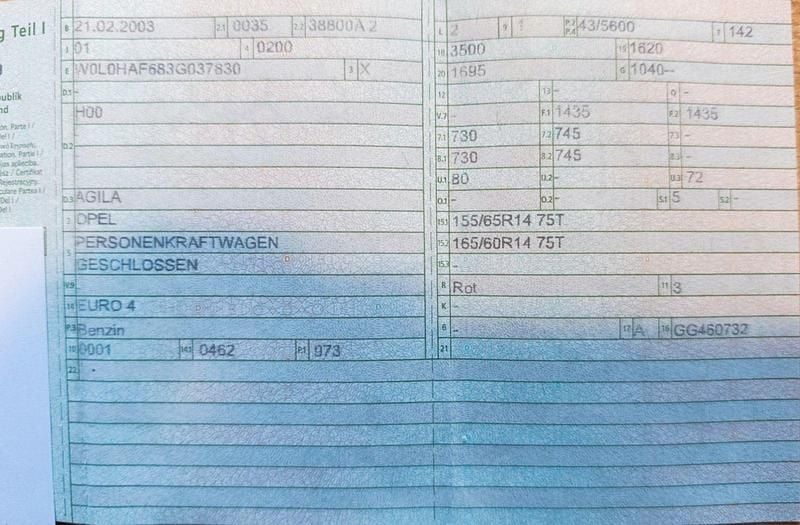 g Teil I
B 21.02.2003 2.1 0035 2.2 38800A 2
J 01 4 0200
E W0L0HAF683G037830 3 X
D.1 -
H00
D.2
D.3 AGILA
2 OPEL
5 PERSONENKRAFTWAGEN
GESCHLOSSEN
V.9
14 EURO 4
P.3 Benzin
10 0001 14.1 0462 P.1 973
22 .
L 2 9 1 P.2 P.4 43/5600 T 142
18 3500 19 1620
20 1695 G 1040--
12 - 13 - Q -
V.7 - F.1 1435 F.2 1435
7.1 730 7.2 745 7.3 -
8.1 730 8.2 745 8.3 -
U.1 80 U.2 - U.3 72
O.1 - O.2 - S.1 5 S.2 -
15.1 155/65R14 75T
15.2 165/60R14 75T
15.3 -
R Rot 11 3
K -
6 - 17 A 16 GG460732
21
ublik
nd